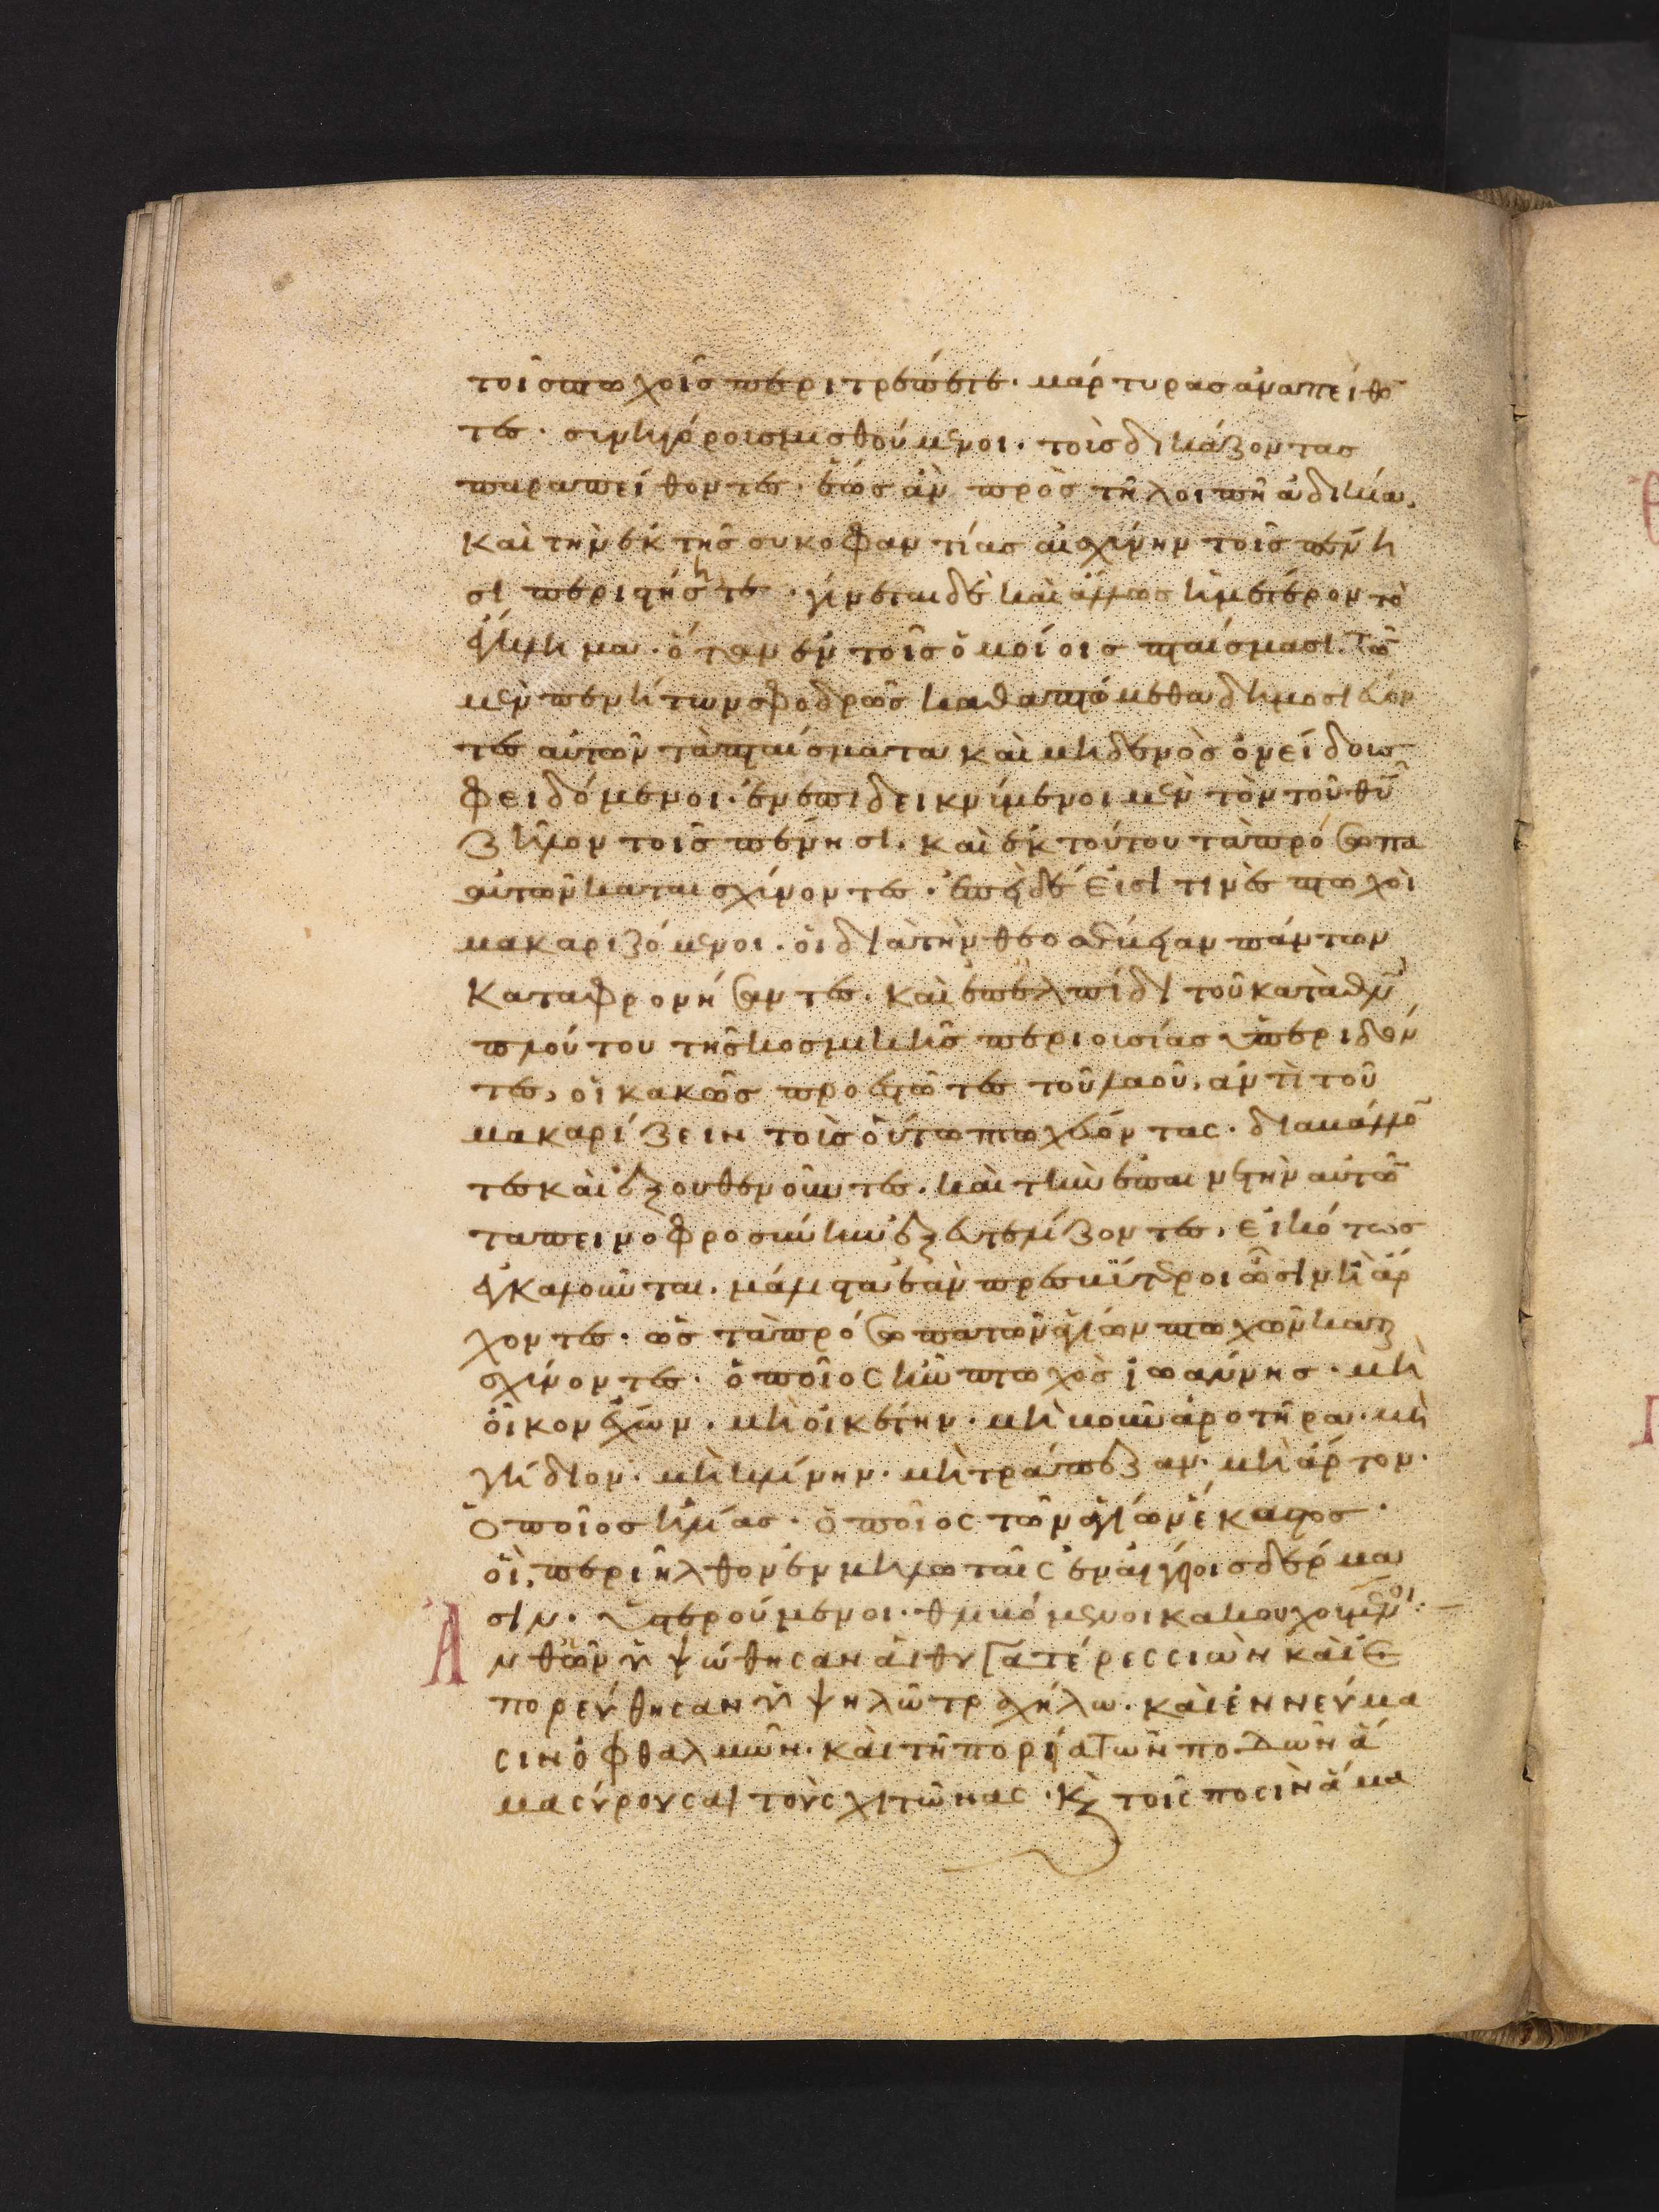 τοῖς πτωχοῖς περιτρέπετε· μάρτυρας ἀναπείθο̅
τες· συνηγόρους μισθούμενοι· τοὺς δικάζοντας
παραπείθοντες· ἕως ἂν πρὸς τῆ λοιπῆ ἀδικία,
καὶ τὴν ἐκ τῆς συκοφαντίας αἰσχύνην τοῖς πένη
σι περιστήσητε· γίνεται δὲ καὶ ἄλλως ἡμέτερον τὸ
ἔγκλημα· ὅταν ἐν τοῖς ὁμοίοις πταίσμασι. τῶ̅
μὲν πενήτων σφοδρῶς καθαπτόμεθα δημοσιεύον
τες αὐτῶν τὰ πταίσματα καὶ μηδενὸς ὀνείδους
φειδόμενοι· ἐνεπιδεικνύμενοι μὲν τὸν τοῦ θῦ
ζῆλον τοῖς πένησι. καὶ ἐκ τούτου τὰ πρόσωπα
αὐτῶν καταισχύνοντες· ἐπεὶ δέ εἰσί τινες πτωχοὶ
μακαριζόμενοι· οἱ διὰ τὴν θεοσέβειαν πάντων
καταφρονήσαντες· καὶ ἐπ ἐλπίδι τοῦ κατὰ θν̅
πλούτου τῆς κοσμικῆς περιουσίας ὑπεριδόν
τες, οἱ κακῶς προεστῶτες τοῦ λαοῦ, ἀντὶ τοῦ
μακαρίζειν τοὺς οὕτω πτωχεύοντας· διαβάλλο̅
τες καὶ ἐξουθενοῦντες· καὶ τὴν ἐπαινετὴν αὐτῶ̅
ταπεινοφροσύνην ἐξευτελίζοντες, εἰκότως
ἐγκαλοῦνται. μάλιστα ἐὰν πρεσβύτεροι ὦσιν ἢ ἄρ
χοντες· ὡς τὰ πρόσωπα τῶν ἁγίων πτωχῶν καται
σχύνοντες· ὁποῖος ἦν πτωχὸς ἰωάννης· μὴ
οἶκον ἔχων· μὴ οἰκέτην· μὴ βοῦν ἀροτῆρα· μὴ
γήδιον· μὴ κλίνην· μὴ τράπεζαν· μὴ ἄρτον·
ὁποῖος ἠλίας· ὁποῖος τῶν ἁγίων ἕκαστος·
οἳ, περιῆλθον ἐν μηλωταῖς ἐν αἰγείοις δέρμα
σιν· ὑστερούμενοι· θλιβόμενοι κακουχούμενοι·
Ἀνθῶν ὑψώθησαν αἱ θυγατέρες σιὼν καὶ ἐ
πορεύθησαν ὑψηλῶ τραχήλω· καὶ ἐν νεύμα
σιν ὀφθαλμῶν· καὶ τῆ πορεία τῶν ποδῶν ἅ
μα σύρουσαι τοὺς χιτῶνας· κ̀ τοῖς ποσὶν ἅμα